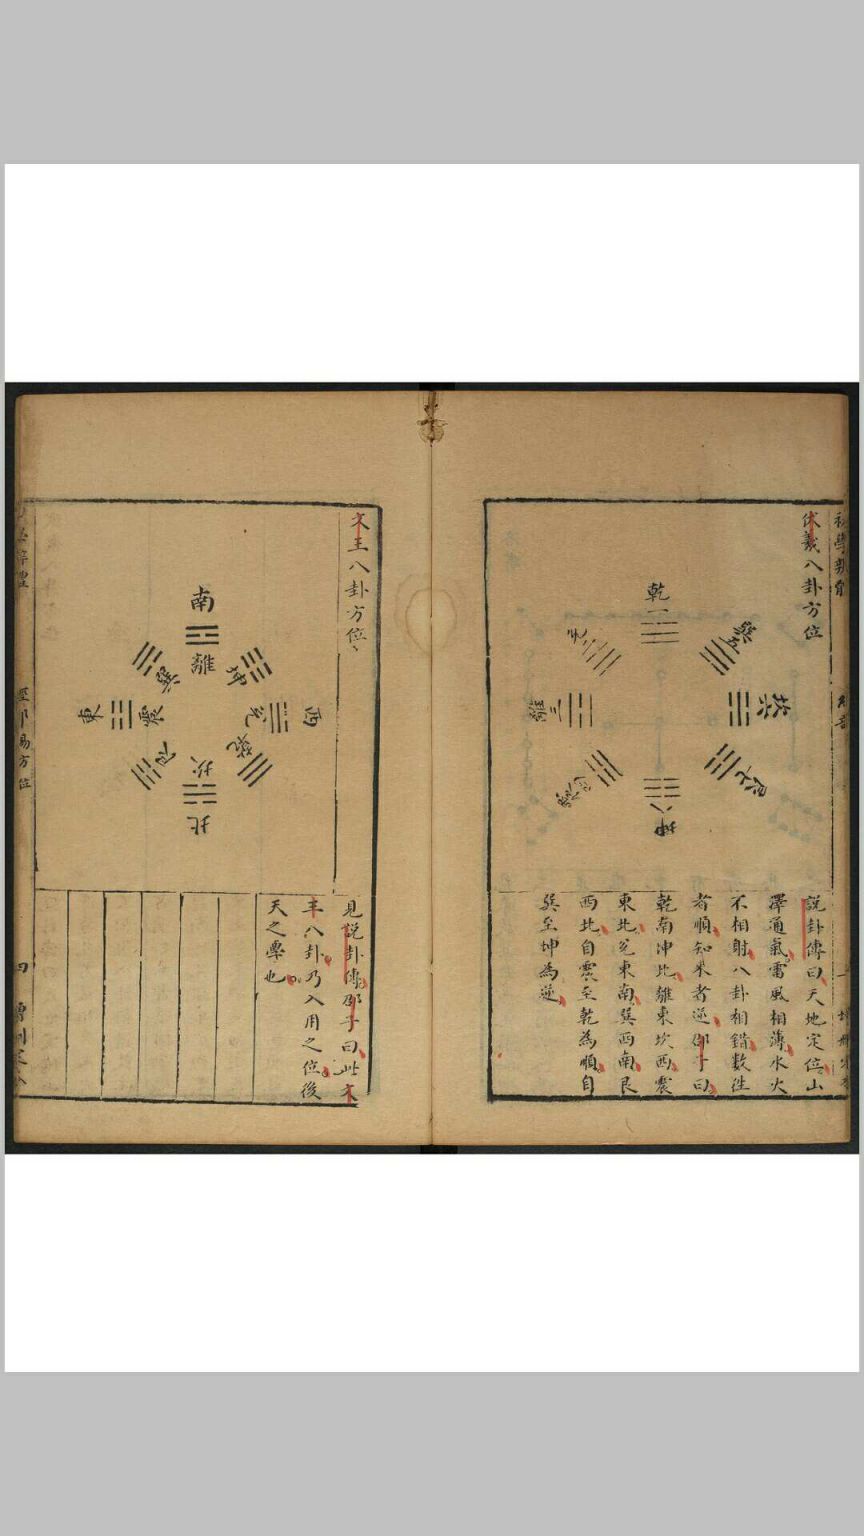 伏羲八卦方位
乾一
兌二
離三
震四
巽五
坎六
艮七
坤八
說卦傳曰天地定位山
澤通氣雷風相薄水火
不相射八卦相錯數往
者順知來者逆邵子曰
乾南坤北離東坎西震
東北兌東南巽西南艮
西北自震至乾為順自
巽至坤為逆
文王八卦方位
南
離
坤
西
兌
乾
坎
北
艮
震
東
巽
見說卦傳邵子曰此文
王八卦乃入用之位後
天之學也